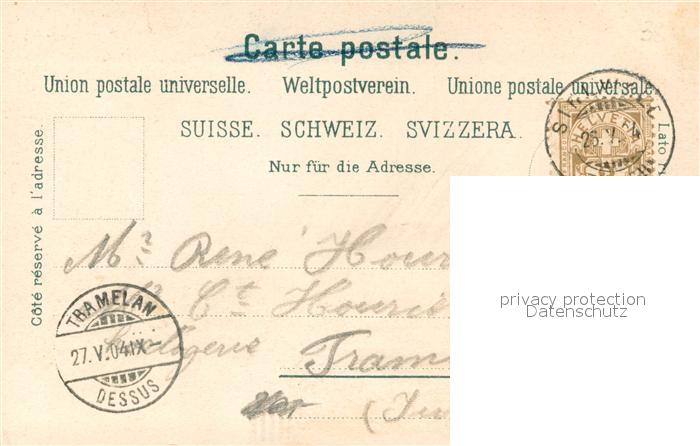 Carte postale.
Union postale universelle. Weltpostverein. Unione postale universale.
SUISSE. SCHWEIZ. SVIZZERA.
Nur für die Adresse.
Côté réservé à l'adresse.
Lato
26.V.
Mr René Hour
Ct Hourie
Horlogerie Tram
TRAMELAN
27.V.04 IX-
DESSUS
privacy protection
Datenschutz